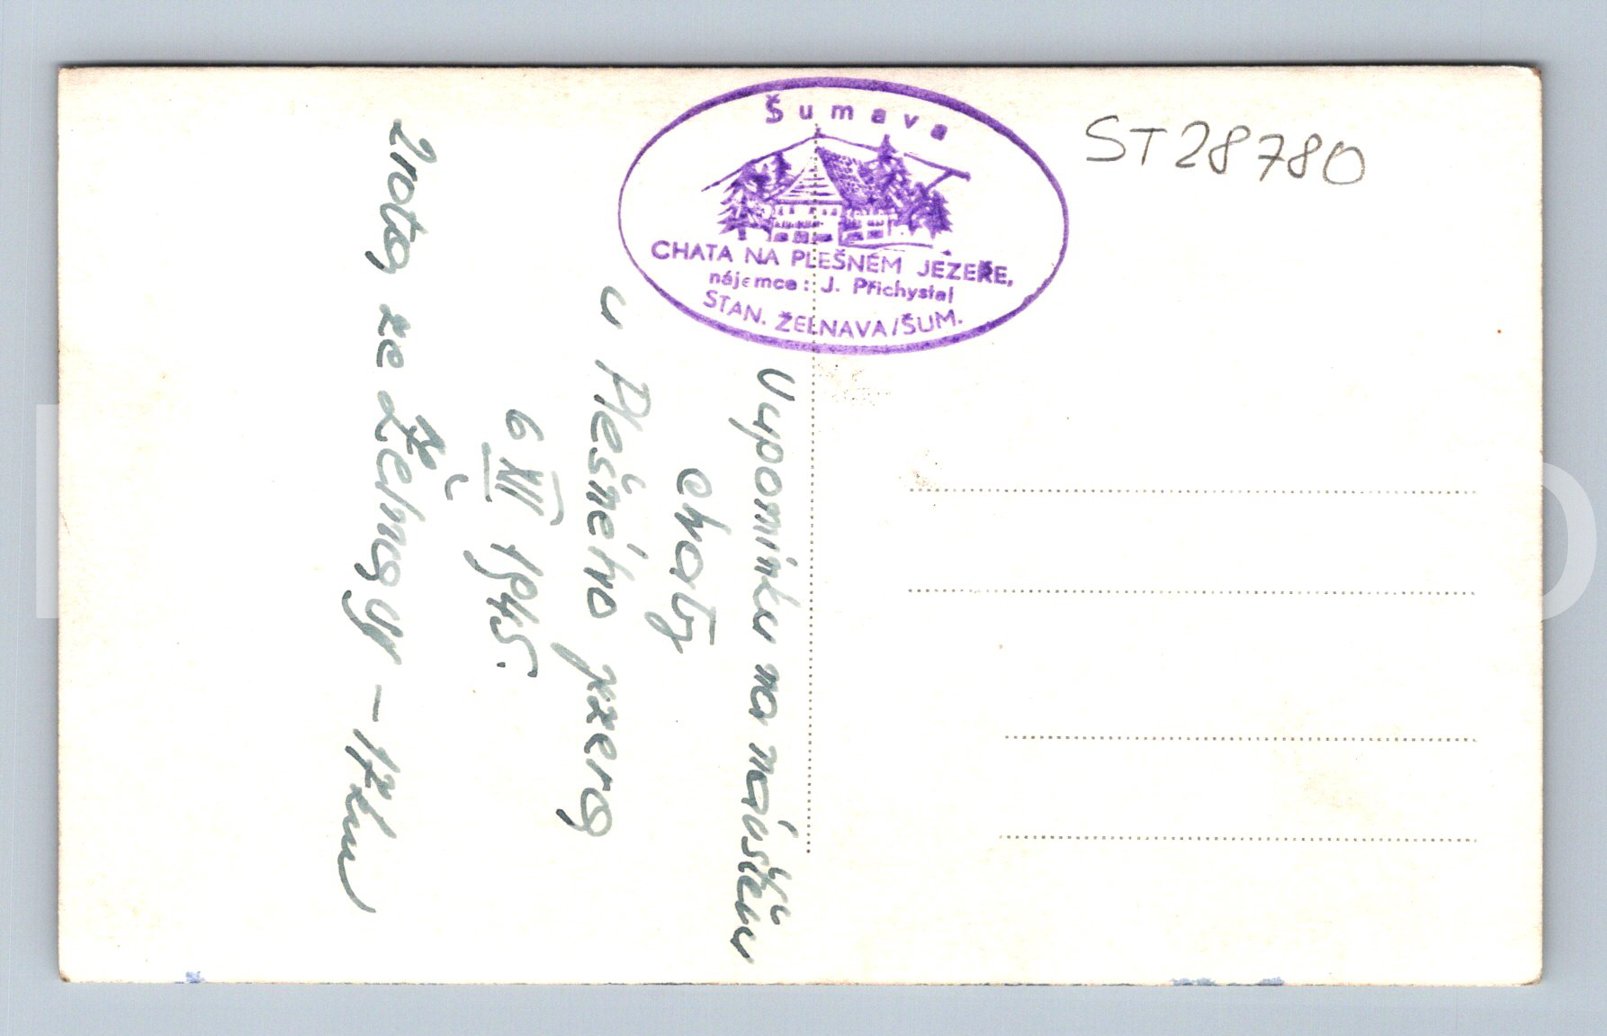 Šumava
CHATA NA PLEŠNÉM JEZEŘE,
nájemce: J. Přichystal
STAN. ŽELNAVA/ŠUM.
ST28780
Vzpomínku na návštěvu
chaty
u Plešného jezera
6 XII 1945.
ze Želnavy - 17 km